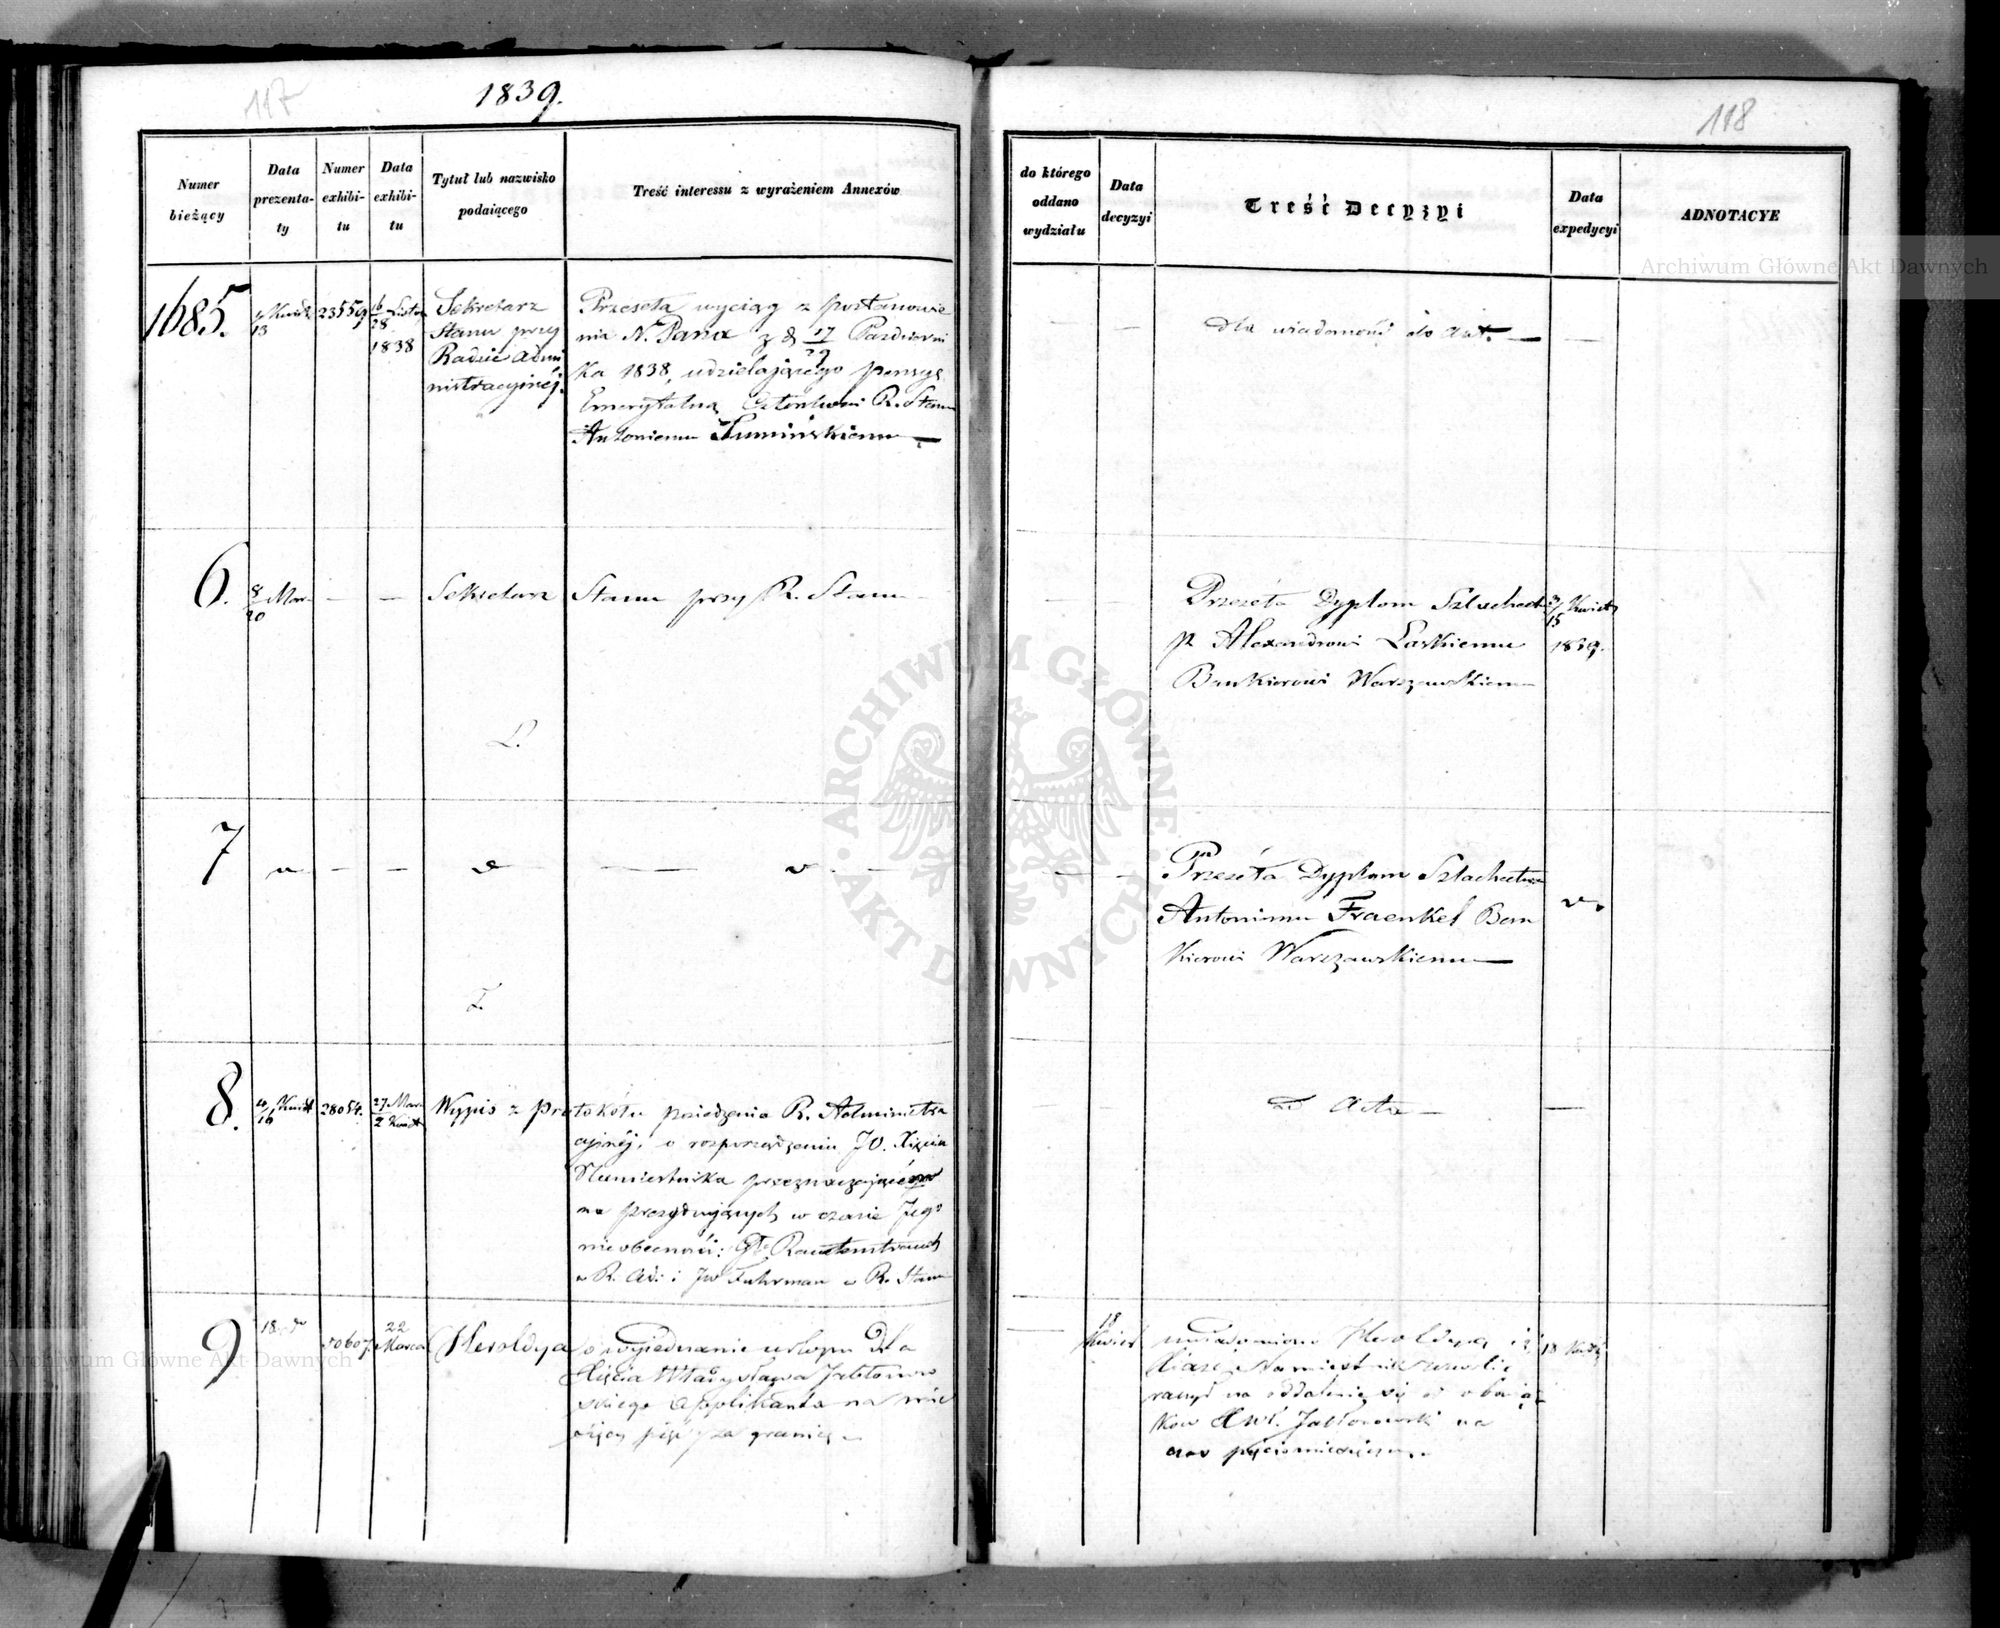 117
1839.
118
Numer bieżący
Data prezentaty
Numer exhibitu
Data exhibitu
Tytuł lub nazwisko podaiącego
Treść interessu z wyrażeniem Annexów
do którego oddano wydziału
Data decyzyi
Treść Decyzyi
Data expedycyi
ADNOTACYE
1685.
13 Kwiet
23559
16/28 Listop
1838
Sekretarz
Stanu przy
Radzie Admi
nistracyjnéj.
Przeséła wyciąg z postanowie
nia N. Pana z d 17/29 Pazdzierni
ka 1838, udzielającego pensyą
Emerytalną Członkowi R. Stanu
Antoniemu Sumińskiemu —
dla wiadomości do Akt. —
6.
8/20 Mar
— —
Sekretarz Stanu przy R. Stanu
L.
Przeséła Dyplom Szlachect
p. Alexandrowi Laskiemu
Bankierowi Warszawskiemu
3/15 Kwiet
1839.
7
— —
F.
Przeséła Dyplom Szlachectwa
Antoniemu Fraenkel Ban
kierowi Warszawskiemu —
8.
/16 Kwiet
28054.
27 Mar
2 Kwiet
Wypis z protokółu posiedzenia R. Administra
cyjnéj, o rozporządzeniu JO. Xięcia
Namiestnika przeznaczającego
na prezydujących w czasie Jego
nieobecności: Rautenstrauch
w R. Ad: i JW Fuhrman w R. Stanu
ad Acta —
9
18
22
Marca
Heroldya
o wyjednanie urlopu dla
Xięcia Władysława Jabłonow
skiego Applikanta na mie
sięcy pięć za granicę
18
Kwiet
Heroldyą iż
Xiąże Namiestnik zezwolić
raczył na oddalenie się od obowiąz
ków X Wł. Jabłonowski na
czas pięciomiesięczny.
18 Kwiet
Archiwum Główne Akt Dawnych
ARCHIWUM GŁÓWNE · AKT DAWNYCH ·
Archiwum Główne Akt Dawnych